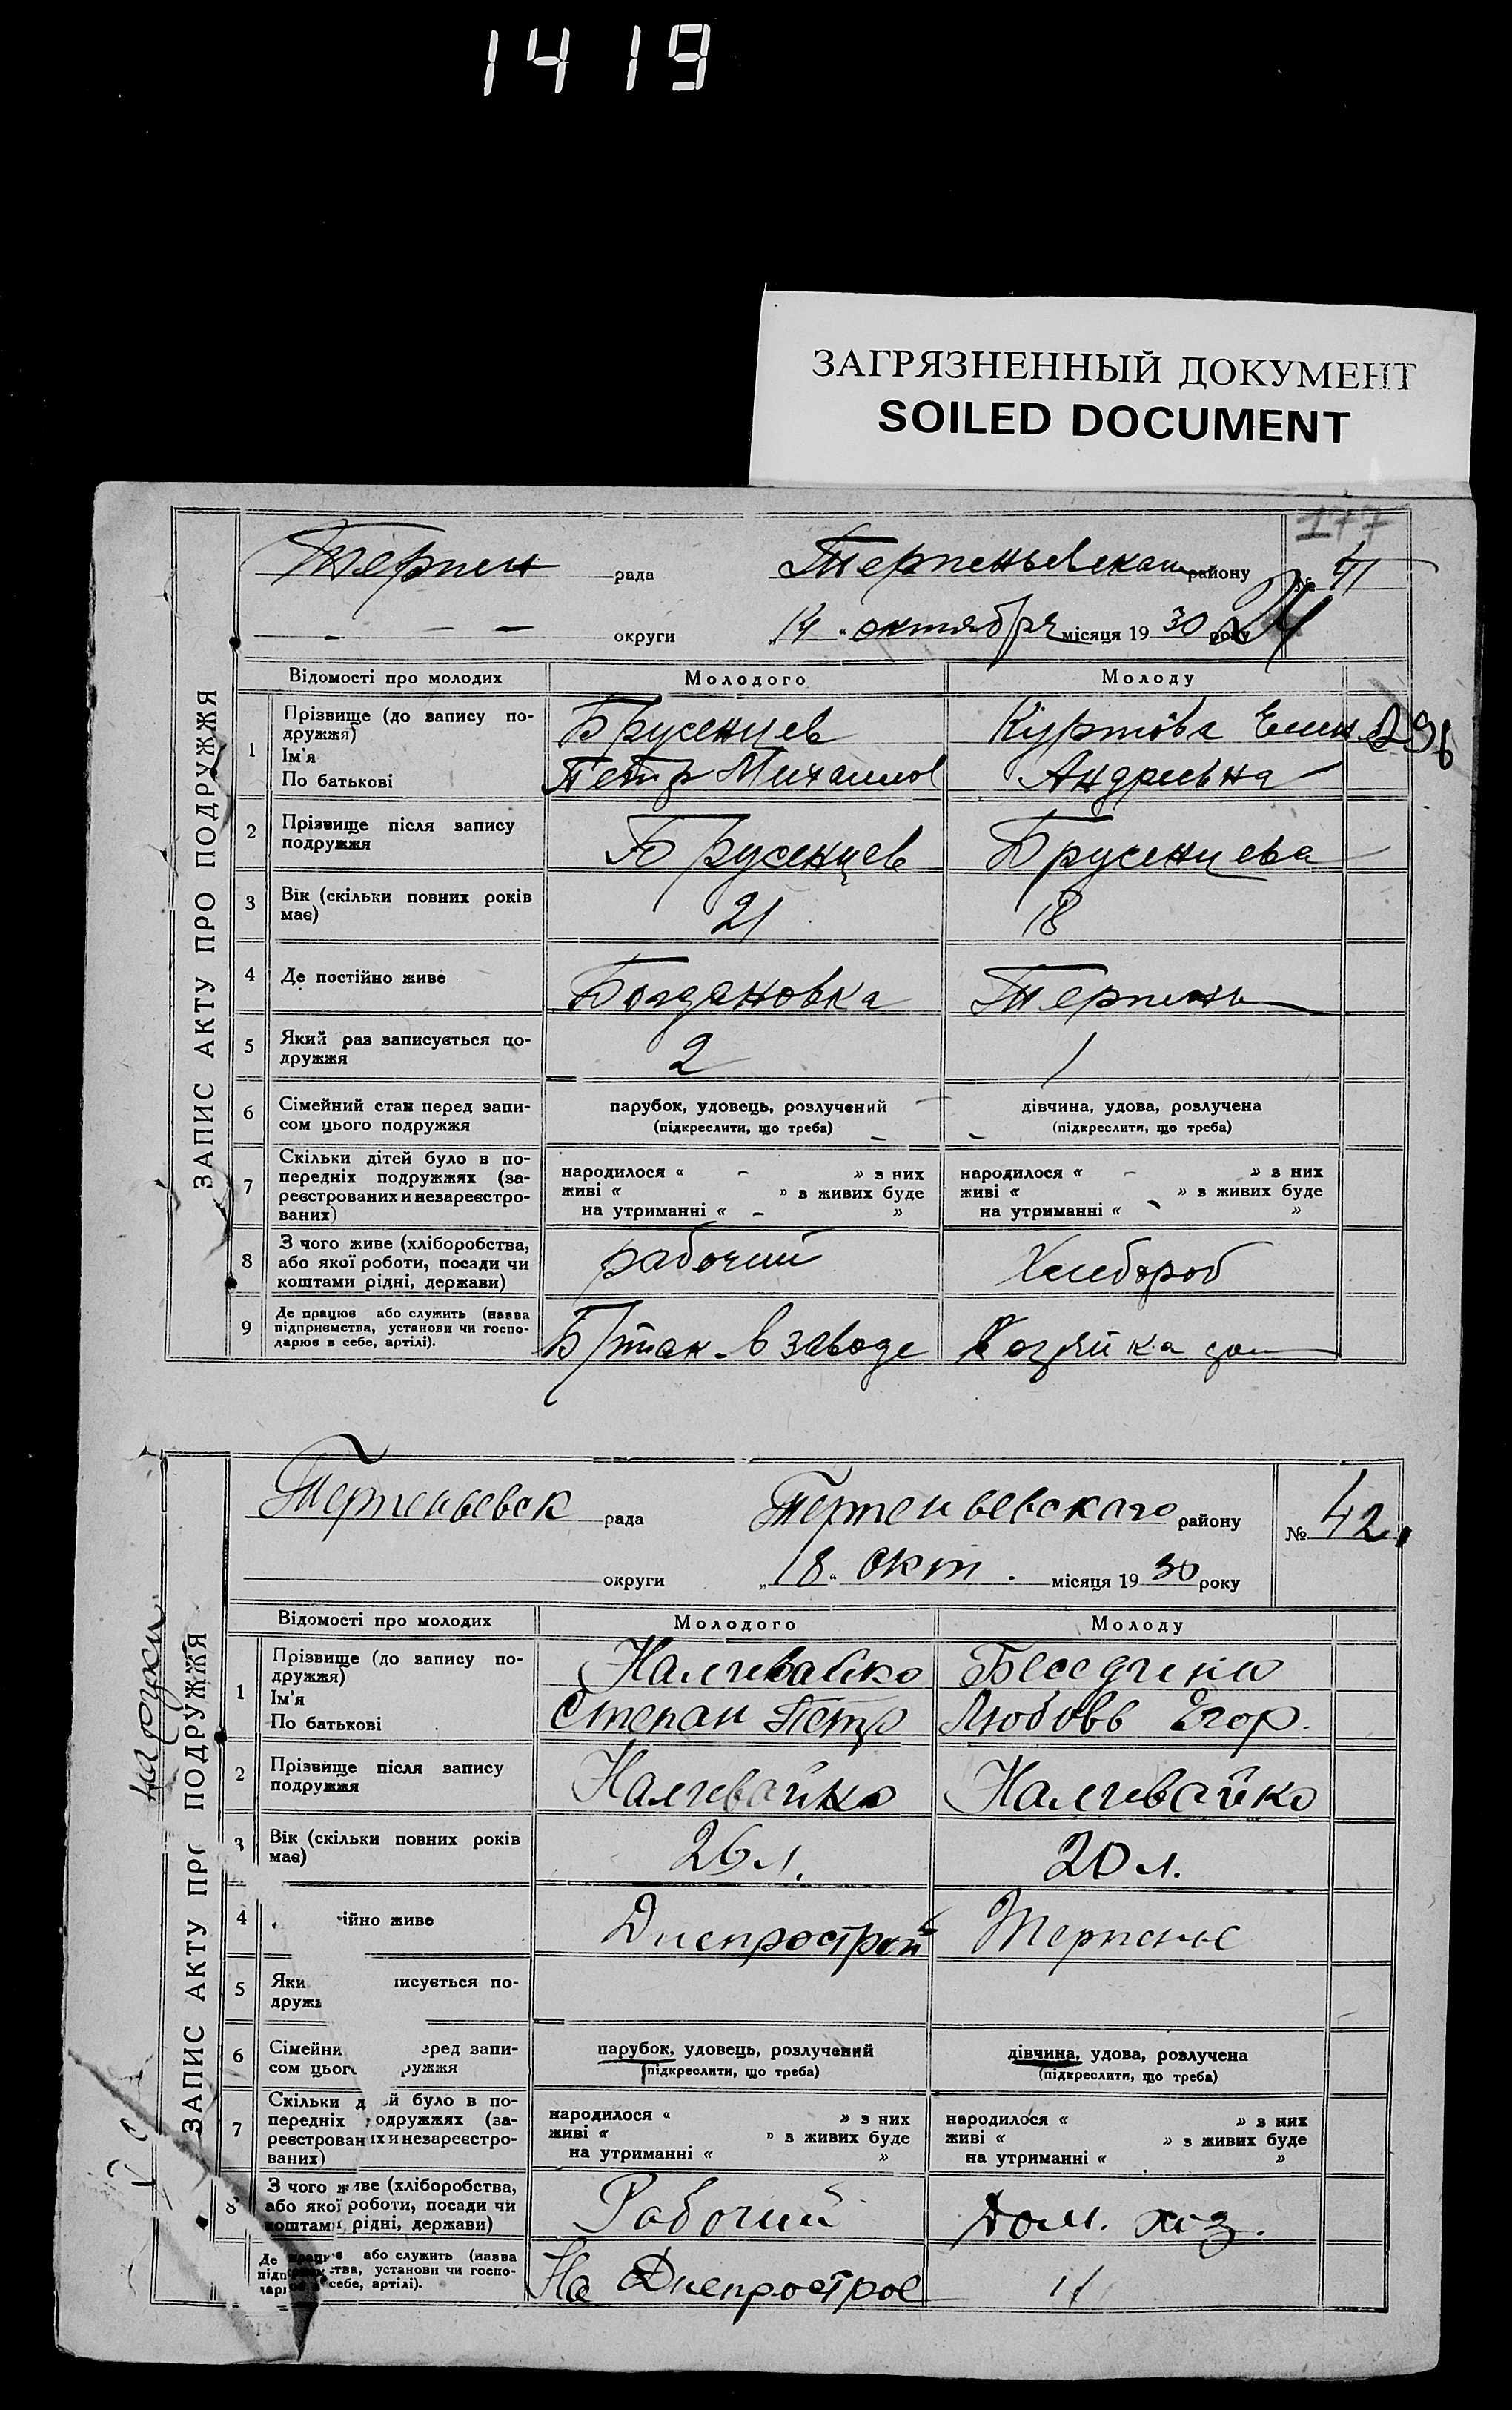 1419
ЗАГРЯЗНЕННЫЙ ДОКУМЕНТ
SOILED DOCUMENT
177
ЗАПИС АКТУ ПРО ПОДРУЖЖЯ
Терпен рада Терпеньевскаго району № 41
округи „14“ октября місяця 1930 року
Відомості про молодих Молодого Молоду
1 Прізвище (до запису подружжя) Ім'я По батькові
Брусенцев Куртова Елен
Петр Михайлов Андреевна
2 Прізвище після запису подружжя
Брусенцев Брусенцева
3 Вік (скільки повних років має)
21 18
4 Де постійно живе Богдановка Терпенье
5 Який раз записується подружжя
2 1
6 Сімейний стан перед запи- парубок, удовець, розлучений дівчина, удова, розлучена
сом цього подружжя (підкреслити, що треба) (підкреслити, що треба)
7 Скільки дітей було в по-
передніх подружжях (за- народилося « – » з них народилося « – » з них
реєстрованих и незареєстро- живі « » з живих буде живі « » з живих буде
ваних) на утриманні « – » на утриманні « – »
8 З чого живе (хліборобства,
або якої роботи, посади чи рабочий Хлебороб
коштами рідні, держави)
9 Де працює або служить (назва
підприємства, установи чи госпо-
дарює в себе, артілі).
в заводе Хозяйка
ЗАПИС АКТУ ПРО ПОДРУЖЖЯ
Терпеньевск рада Терпеньевскаго району № 42
округи „18“ окт. місяця 1930 року
Відомості про молодих Молодого Молоду
1 Прізвище (до запису подружжя) Ім'я По батькові
Наливайко Беседина
Степан Петр Любовь Егор.
2 Прізвище після запису подружжя
Наливайко Наливайко
3 Вік (скільки повних років має)
26 л. 20 л.
4 ійно живе Днепрострой Терпенье
5 Яки исується по-
друж
6 Сімейни еред запи- парубок, удовець, розлучений дівчина, удова, розлучена
сом цього ружжя (підкреслити, що треба) (підкреслити, що треба)
7 Скільки д й було в по-
передніх одружжях (за- народилося « » з них народилося « » з них
реєстрован их и незареєстро- живі « » з живих буде живі « » з живих буде
ваних) на утриманні « » на утриманні « »
8 З чого живе (хліборобства,
або якої роботи, посади чи Рабочий Дом. хоз.
коштами рідні, держави)
Де працює або служить (назва
підприємства, установи чи госпо-
дарює в себе, артілі).
На Днепрострое "